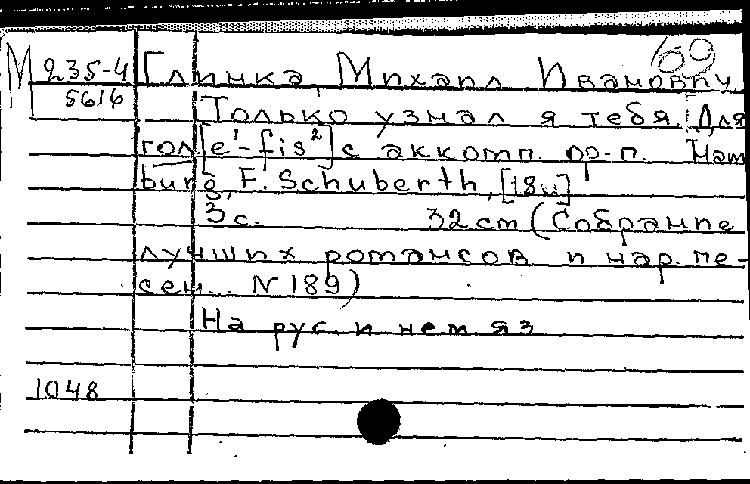 69
М 235-4 Глинка, Михаил Иванович
5616 Только узнал я тебя. Для
гол [e¹-fis²] с аккомп. ф-п. Ham
burg, F. Schuberth, [18и]
3 с. 32 cm (Собрание
лучших романсов и нар. пе-
сен... N 189)
На рус. и нем яз
1048